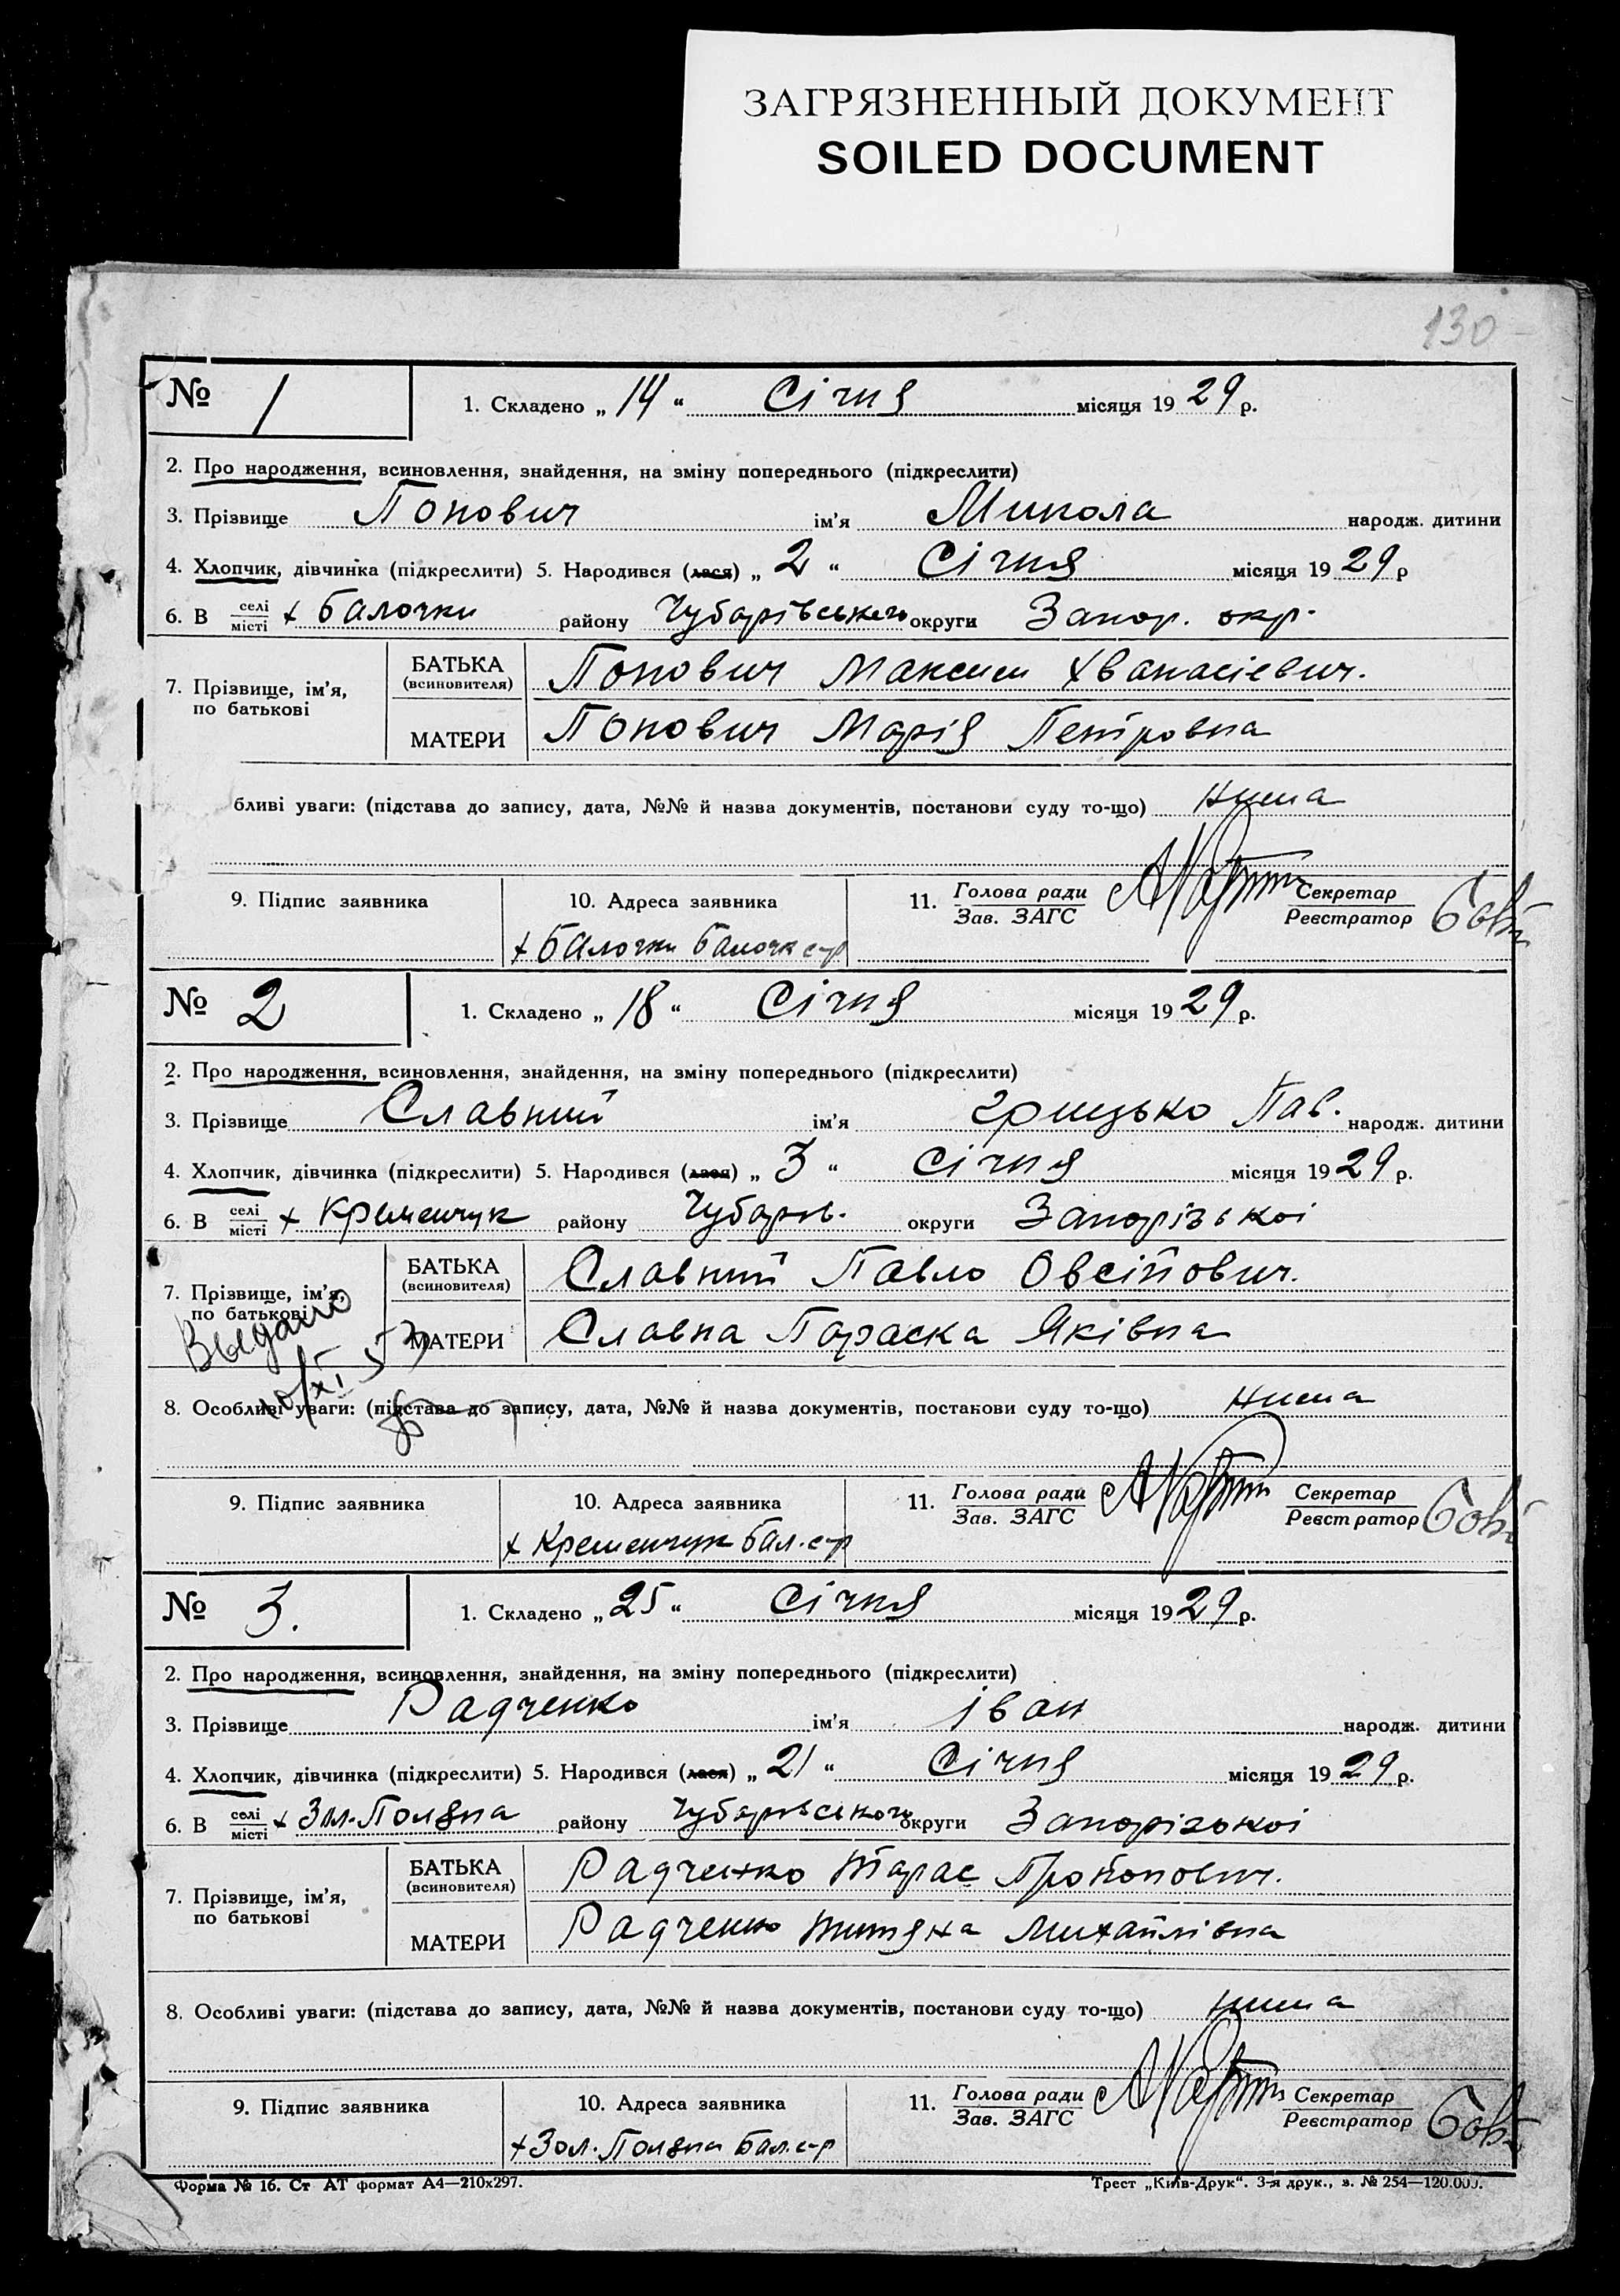 ЗАГРЯЗНЕННЫЙ ДОКУМЕНТ
SOILED DOCUMENT
130
№ 1 1. Складено „ 14 “ Січня місяця 1929 р.
2. Про народження, всиновлення, знайдення, на зміну попереднього (підкреслити)
3. Прізвище Попович ім'я Микола народж. дитини
4. Хлопчик, дівчинка (підкреслити) 5. Народився (лася) „ 2 “ Січня місяця 1929 р
6. В селі/місті х Балочки району Чубарівського округи Запор. окр.
7. Прізвище, ім'я, по батькові
БАТЬКА (всиновителя) Попович Максим Хванасієвич.
МАТЕРИ Попович Марія Петровна
бливі уваги: (підстава до запису, дата, №№ й назва документів, постанови суду то-що) Нима
9. Підпис заявника 10. Адреса заявника 11. Голова ради/Зав. ЗАГС Секретар/Реєстратор
х Балочки Балочк с-р
№ 2 1. Складено „ 18 “ Січня місяця 1929 р.
2. Про народження, всиновлення, знайдення, на зміну попереднього (підкреслити)
3. Прізвище Славний ім'я Грицько Пав. народж. дитини
4. Хлопчик, дівчинка (підкреслити) 5. Народився (лася) „ 3 “ Січня місяця 1929 р.
6. В селі/місті х Кременчук району Чубарів. округи Запорізької
7. Прізвище, ім'я, по батькові
БАТЬКА (всиновителя) Славний Павло Овсійович.
МАТЕРИ Славна Параска Яківна
Выдано
10/XI 53
8. Особливі уваги: (підстава до запису, дата, №№ й назва документів, постанови суду то-що) Нима
9. Підпис заявника 10. Адреса заявника 11. Голова ради/Зав. ЗАГС Секретар/Реєстратор
х Кременчук Бал. с-р
№ 3. 1. Складено „ 25 “ Січня місяця 1929 р.
2. Про народження, всиновлення, знайдення, на зміну попереднього (підкреслити)
3. Прізвище Радченко ім'я Іван народж. дитини
4. Хлопчик, дівчинка (підкреслити) 5. Народився (лася) „ 21 “ Січня місяця 1929 р.
6. В селі/місті х Зол. Поляна району Чубарівського округи Запорізької
7. Прізвище, ім'я, по батькові
БАТЬКА (всиновителя) Радченко Тарас Прокопович.
МАТЕРИ Радченко Титяна Михайлівна
8. Особливі уваги: (підстава до запису, дата, №№ й назва документів, постанови суду то-що) Нима
9. Підпис заявника 10. Адреса заявника 11. Голова ради/Зав. ЗАГС Секретар/Реєстратор
х Зол. Поляна Бал. с-р
Форма № 16. Ст АТ формат А4—210х297. Трест „Київ-Друк“. 3-я друк., з. № 254—120.000.